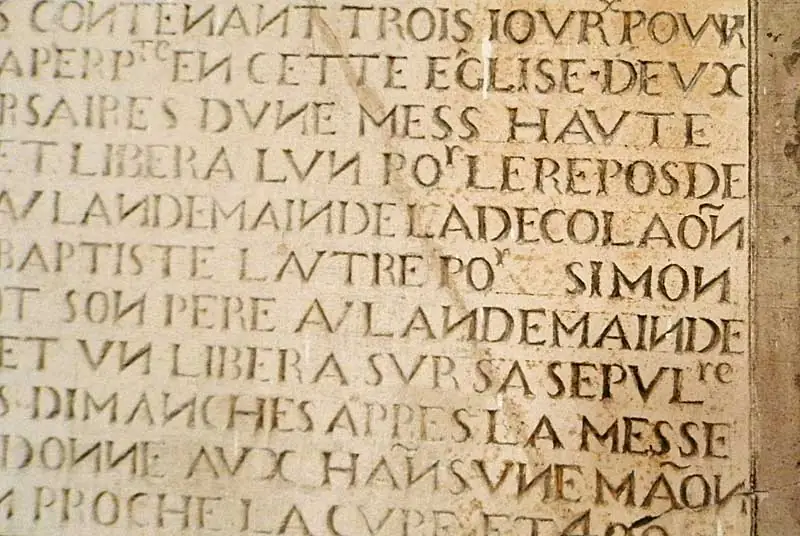 S CONTENANT TROIS IOVRˣ POVR
APERPᵗᶜ EN CETTE EGLISE·DEVX
RSAIRES DVNE MESS HAVTE
ET LIBERA LVN POʳ LE REPOS DE
A/LANDEMAIN DE LA DECOLAOÑ
BAPTISTE LAVTRE POʳ SIMON
OT SON PERE A/LANDEMAIN DE
ET VN LIBERA SVR SA SEPVLʳᵉ
S·DIMANCHES APPES LA MESSE
DONNE AVX HAÑS VNE MAÕN
N PROCHE LA CVRE ET 400